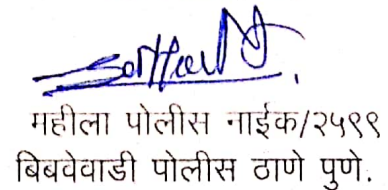 महीला पोलीस नाईक/२५९९
बिबवेवाडी पोलीस ठाणे पुणे.